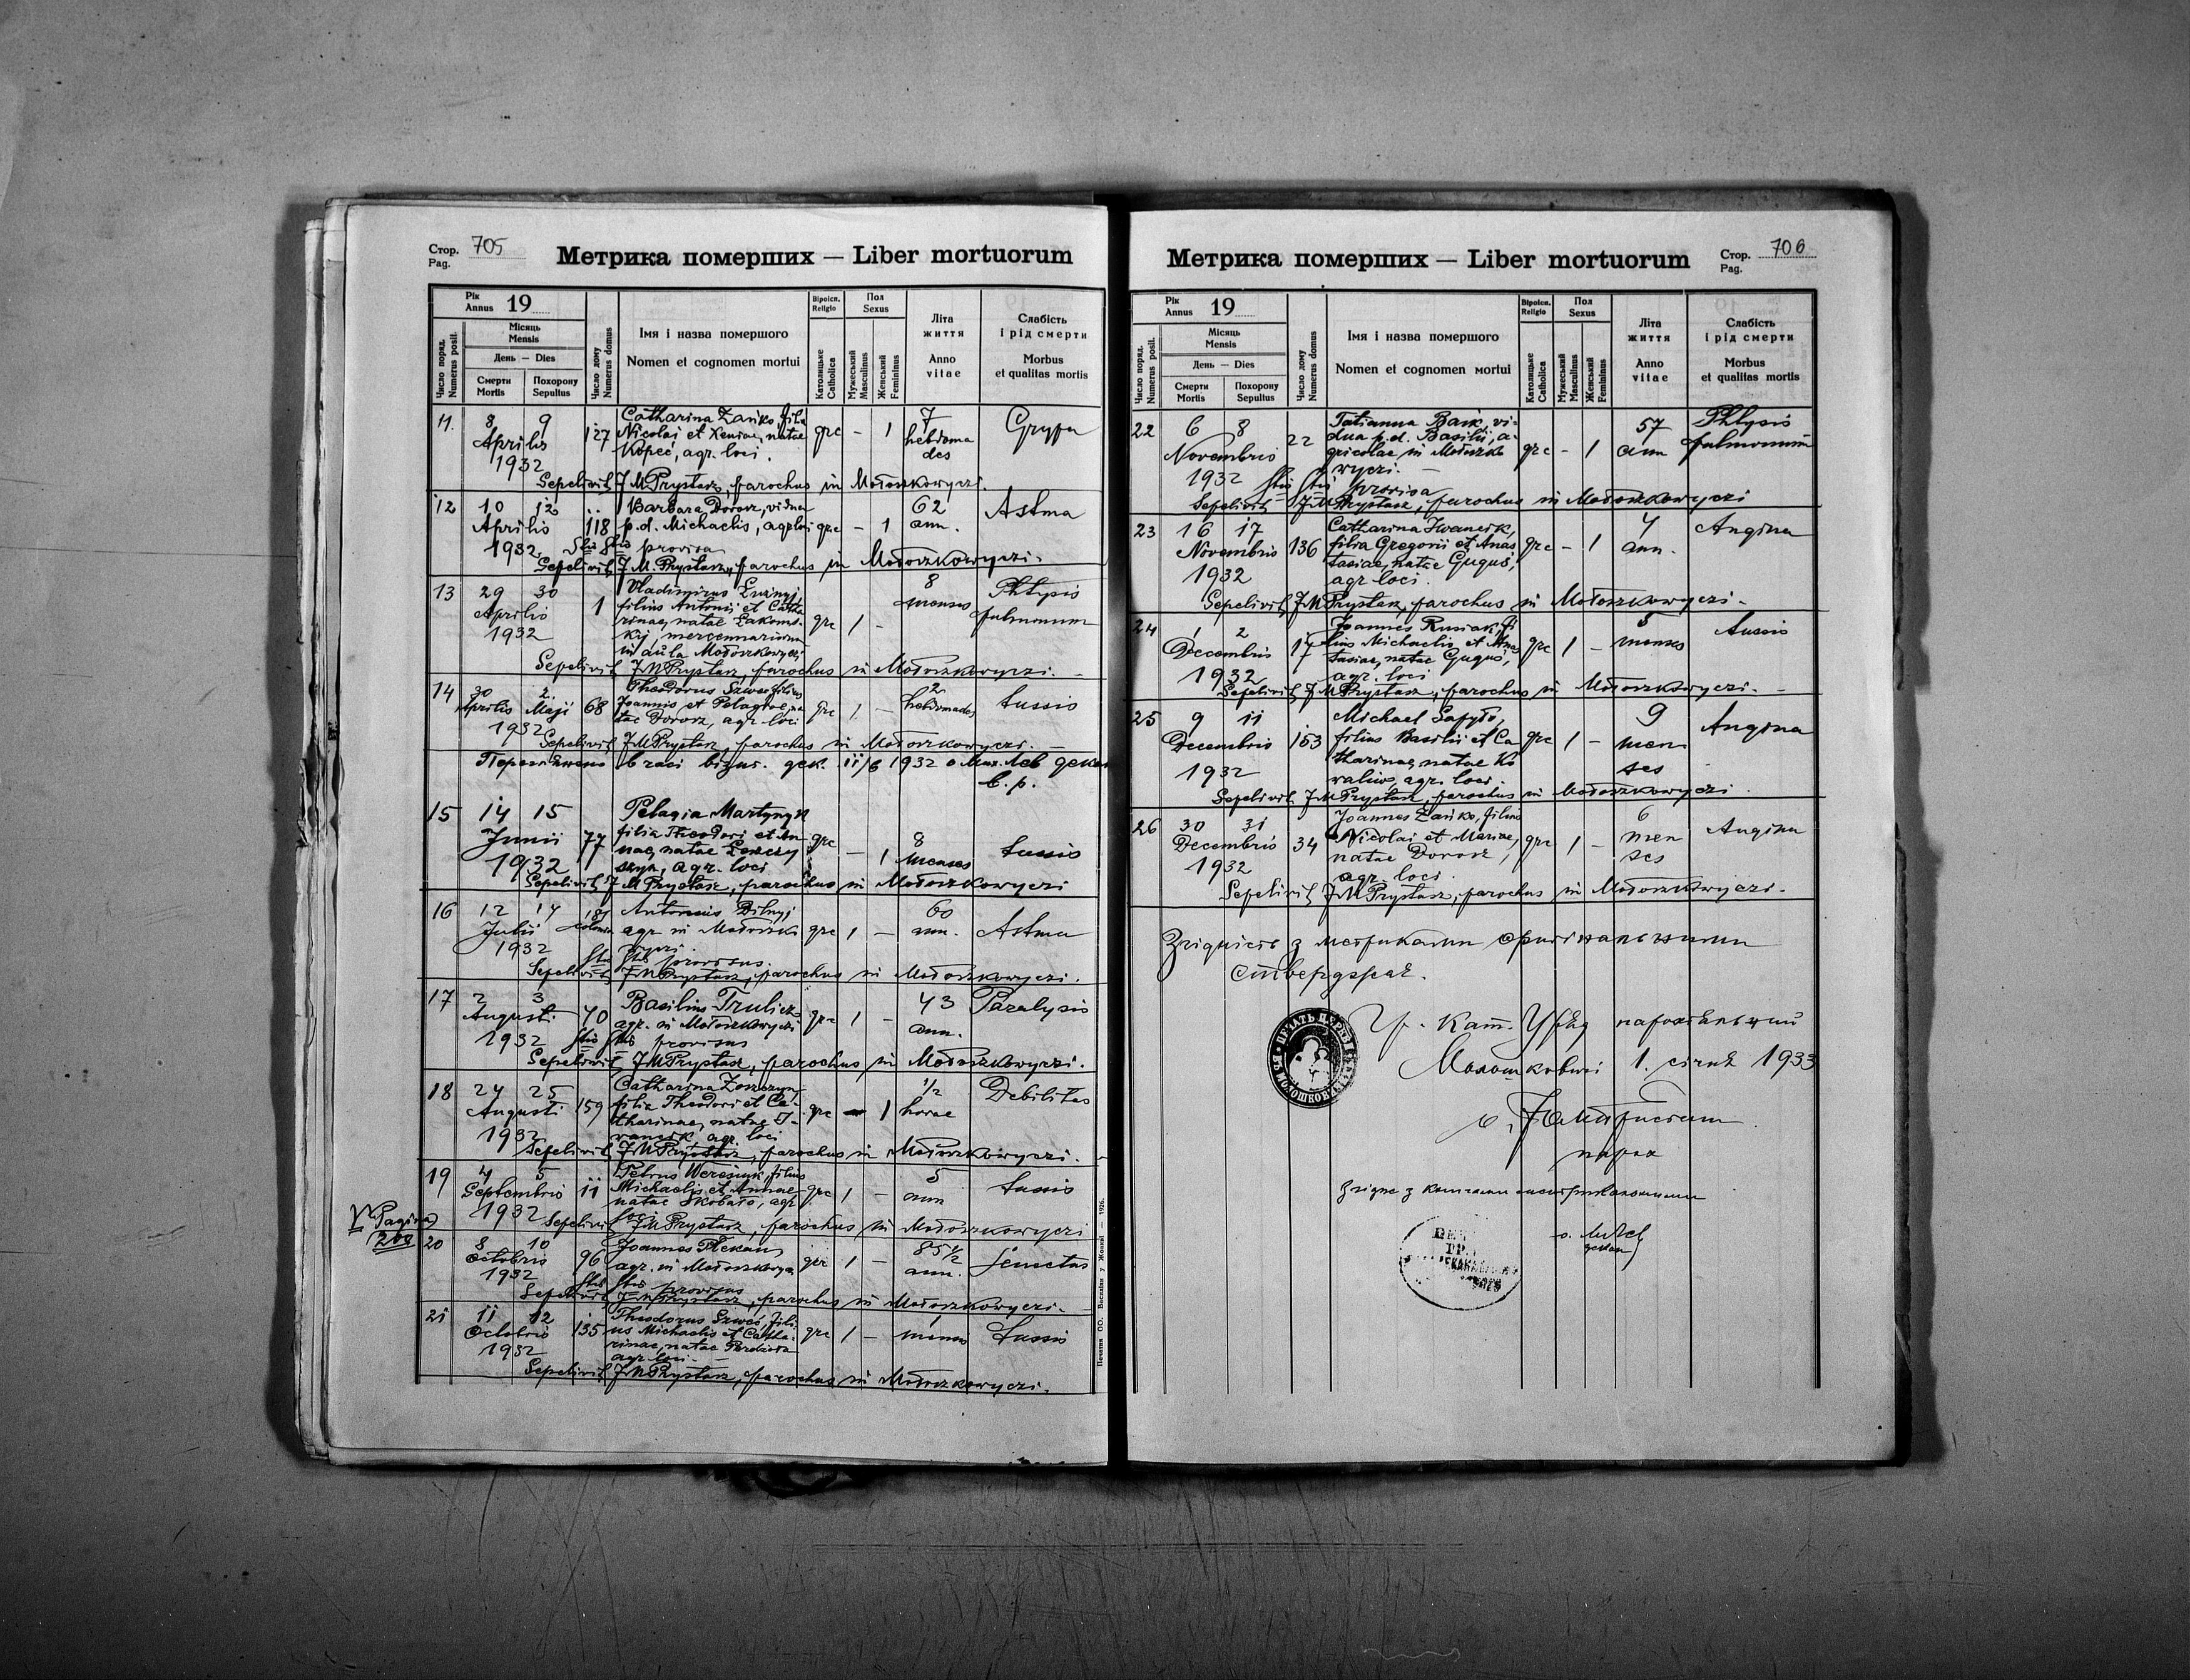 Стор. 705
Pag.
Метрика померших — Liber mortuorum
Рік
Annus 19
Місяць
Mensis
День — Dies
Смерти
Mortis
Похорону
Sepultus
Число поряд.
Numerus posit.
Число дому
Numerus domus
Імя і назва помершого
Nomen et cognomen mortui
Віроісп.
Religio
Католицьке
Catholica
Пол
Sexus
Мужеський
Masculinus
Женський
Femininus
Літа
життя
Anno
vitae
Слабість
і рід смерти
Morbus
et qualitas mortis
11. 8 9 Catharina Zańko, filia 7
Aprilis 127 Nicolai et Xeniae, natae grc – 1 hebdoma Grypa
1932 Kopeć, agr. loci. des
Sepelivit J M Prystasz, parochus in Mołoszkowyczi.
12 10 12 Barbara Dorosz, vidua 62 Astma
Aprilis 118 p.d. Michaelis, agr. loci grc – 1 ann.
1932 Stis Stis provisa
Sepelivit J M Prystasz, parochus in Mołoszkowyczi.
13 29 30 Vladimirus 8 Phtysis
Aprilis 1 filius Antonii et Catha menses pulmonum
1932 rinae, natae Łakoms- grc 1 –
kij, mercennariorum
in aula Mołoszkowyczi
Sepelivit J M Prystasz, parochus in Mołoszkowyczi.
14 30 2 Theodorus Szwec, filius 2
Aprilis Maji 68 Joannis et Pelagiae, na grc 1 – hebdomades tussis
1932 tae Dorosz, agr. loci
Sepelivit J M Prystasz, parochus in Mołoszkowyczi.
в часі візит. дек. 11/6 1932 о. Мих. Лев декан
в. р.
15 14 15 Pelagia Martynyk
Junii 77 filia Theodori et An- grc 8
1932 nae, natae – 1 menses tussis
agr. loci
Sepelivit J M Prystasz, parochus in Mołoszkowyczi
16 12 14 181 Antonius Dilnyj 60
Julii colonia agr. in Mołoszko grc 1 – ann. Astma
1932 wyczi.
Stis Stis provisus.
Sepelivit J M Prystasz, parochus in Mołoszkowyczi.
17 2 3 Basilius Trulicz 43 Paralysis
Augusti 70 agr. in Mołoszkowyczi grc 1 – ann.
1932 Stis Stis provisus
Sepelivit J M Prystasz, parochus in Mołoszkowyczi.
18 24 25 Catharina ½ Debilitas
Augusti 159 filia Theodori et Ca- grc – 1 horae
1932 tharinae, natae I-
wancik agr. loci
Sepelivit J M Prystasz, parochus in Mołoszkowyczi.
19 4 5 Petrus Weresiuk, filius 5
Septembris 11 Michaelis et Annae grc 1 – ann tussis
1932 natae Skobało, agr.
loci
Sepelivit J M Prystasz, parochus in Mołoszkowyczi
Pagina
208
20 8 10 Joannes Plekan 85 ½
Octobris 96 agr. in Mołoszkowycz grc 1 – ann. senectus
1932 Stis Stis provisus
Sepelivit J M Prystasz, parochus in Mołoszkowyczi.
21 11 12 Theodorus Szwec, fili- 1
Octobris 135 us Michaelis et Catha- grc 1 – mensis tussis
1932 rinae, natae
agr. loci.
Sepelivit J M Prystasz, parochus in Mołoszkowyczi.
Печатня ОО. Василіян у Жовкві — 1926.
Метрика померших — Liber mortuorum
Стор. 706
Pag.
Рік
Annus 19
Місяць
Mensis
День — Dies
Смерти
Mortis
Похорону
Sepultus
Число поряд.
Numerus posit.
Число дому
Numerus domus
Імя і назва помершого
Nomen et cognomen mortui
Віроісп.
Religio
Католицьке
Catholica
Пол
Sexus
Мужеський
Masculinus
Женський
Femininus
Літа
життя
Anno
vitae
Слабість
і рід смерти
Morbus
et qualitas mortis
22 6 8 Tatianna Baik, vi- 57 Phtysis
Novembris 22 dua p.d. Basilii, a- grc – 1 ann pulmonum
1932 gricolae in Mołoszko
wyczi.
Stis Stis provisa
Sepelivit J M Prystasz, parochus in Mołoszkowyczi
23 16 17 Catharina Iwancik, 4 Angina
Novembris 136 filia Gregorii et Anas grc – 1 ann.
1932 tasiae, natae Guguś,
agr loci.
Sepelivit J M Prystasz, parochus in Mołoszkowyczi.
24 1 2 Joannes Rusiak, fi 5 tussis
Decembris 17 lius Michaelis et Anas grc 1 – menses
1932 tasiae, natae Guguś,
agr. loci
Sepelivit J M Prystasz, parochus in Mołoszkowyczi.
25 9 11 Michael Sapyło, 9 Angina
Decembris 153 filius Basilii et Ca grc 1 – men
1932 tharinae, natae Ko ses
waliw, agr. loci.
Sepelivit J M Prystasz, parochus in Mołoszkowyczi
26 30 31 Joannes Zańko, filius 6
Decembris 34 Nicolai et Mariae, grc 1 – men Angina
1932 natae Dorosz, ses
agr. loci.
Sepelivit J M Prystasz, parochus in Mołoszkowyczi.
Згідність з метриками оригінальними
стверджає.
Гр. кат. Уряд парохіяльний
Молошковичі 1. січня 1933
парох
Згідне з книгами метрикальними
о. М. Лев
декан